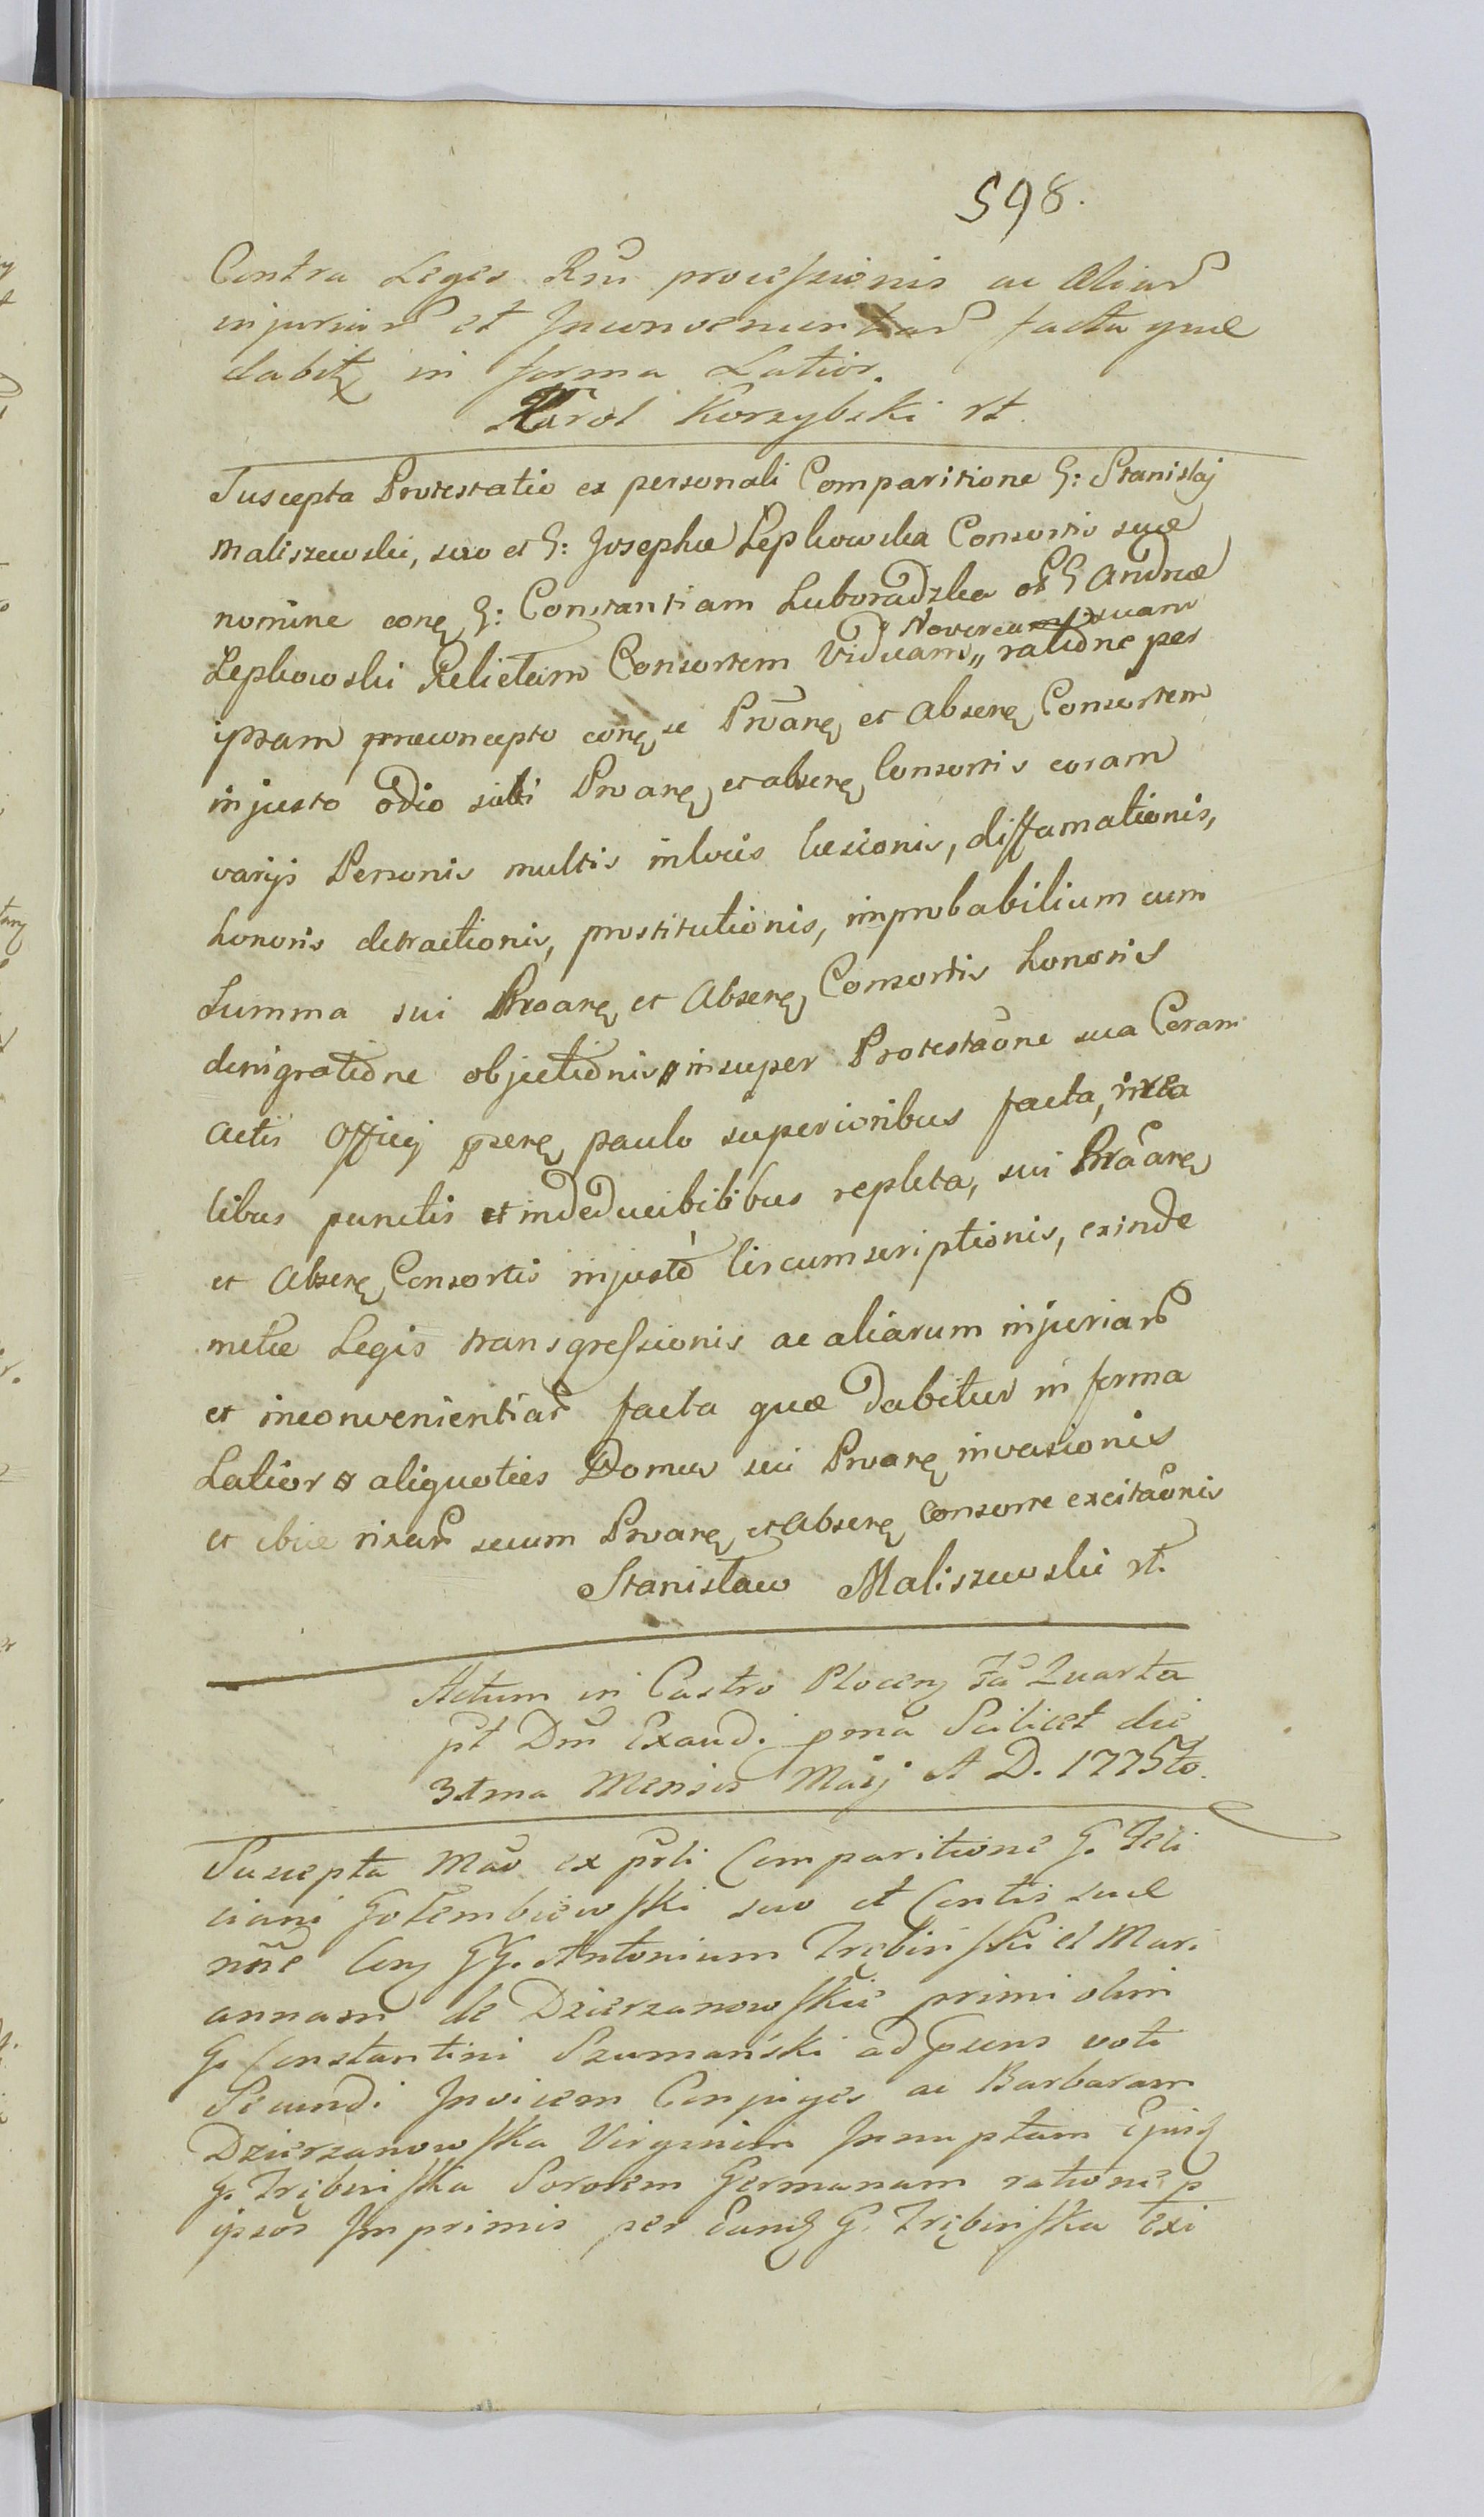 598.
Contra Leges Rni processionis ac Aliar
injuriar et Inconvenientiar facta quæ
dabitꝫ in forma Latior.
Karol Korzybski rt.
Suscepta Protestatio ex personali Comparitione G: Stanislaj
Maliszewski, suo et G: Josephæ Lepkowska Consortis suæ
nomine conę G: Constantiam Luboradzka ol G Andreæ
Novercam suam
Lepkowski Relictam Consortem Viduam,, ratione per
ipsam præconcepto conę se Proarę et Absenę Consortem
injusto odio sibi Proarę et absenę Consortis coram
varijs Personis multis in locis læsionis, diffamationis,
honoris detractionis, prostitutionis, improbabilium cum
Summa sui Proarę et Absenę Consortis honoris
denigratione objectionis insuper Protestaone sua Coram
Actis Officij pserę paulo superioribus facta, ineta
libus punctis et indeducibilibus repleta, sui Proarę
et Absenę Consortis injustè circumscriptionis, exinde
metæ Legis transgressionis ac aliarum injuriar
et inconvenientiar facta quæ dabitur in forma
Latior aliquoties Domus sui Proarę invasionis
et ibiæ rixar secum Proarę et Absenę Consorte excitaonis
Stanisław Maliszewski rt.
Actum in Castro Plocenꝫ Fa Quarta
pt Dm Exaudi pma Scilicet die
31ma Mensis Maij A D. 1775to.
Suscepta Mao ex prli Comparitione G. Feli
ciani Gołembiewski suo et Contis suæ
nõe Conꝫ GG. Antonium Trębinski et Mari
annam de Dzierzanowskie primi olim
G. Constantini Szumański ad psens voti
Secundi Invicem Conjuges ac Barbaram
Dzierzanowska Virginem Innuptam Ejusꝫ
G. Trębinska Sororem Germanam ratione p
ipsos Imprimis per Eandꝫ G. Trębinska Exi